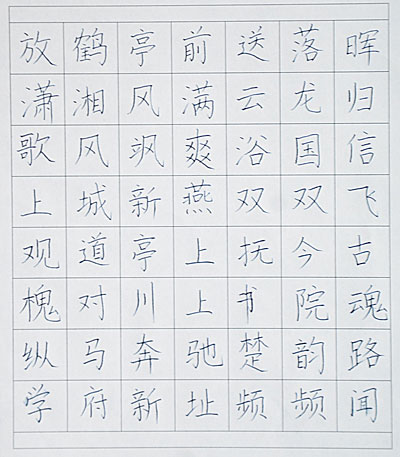 放鹤亭前送落晖
潇湘风满云龙归
歌风飒爽浴国信
上城新燕双双飞
观道亭上抚今古
槐对川上书院魂
纵马奔驰楚韵路
学府新址频频闻